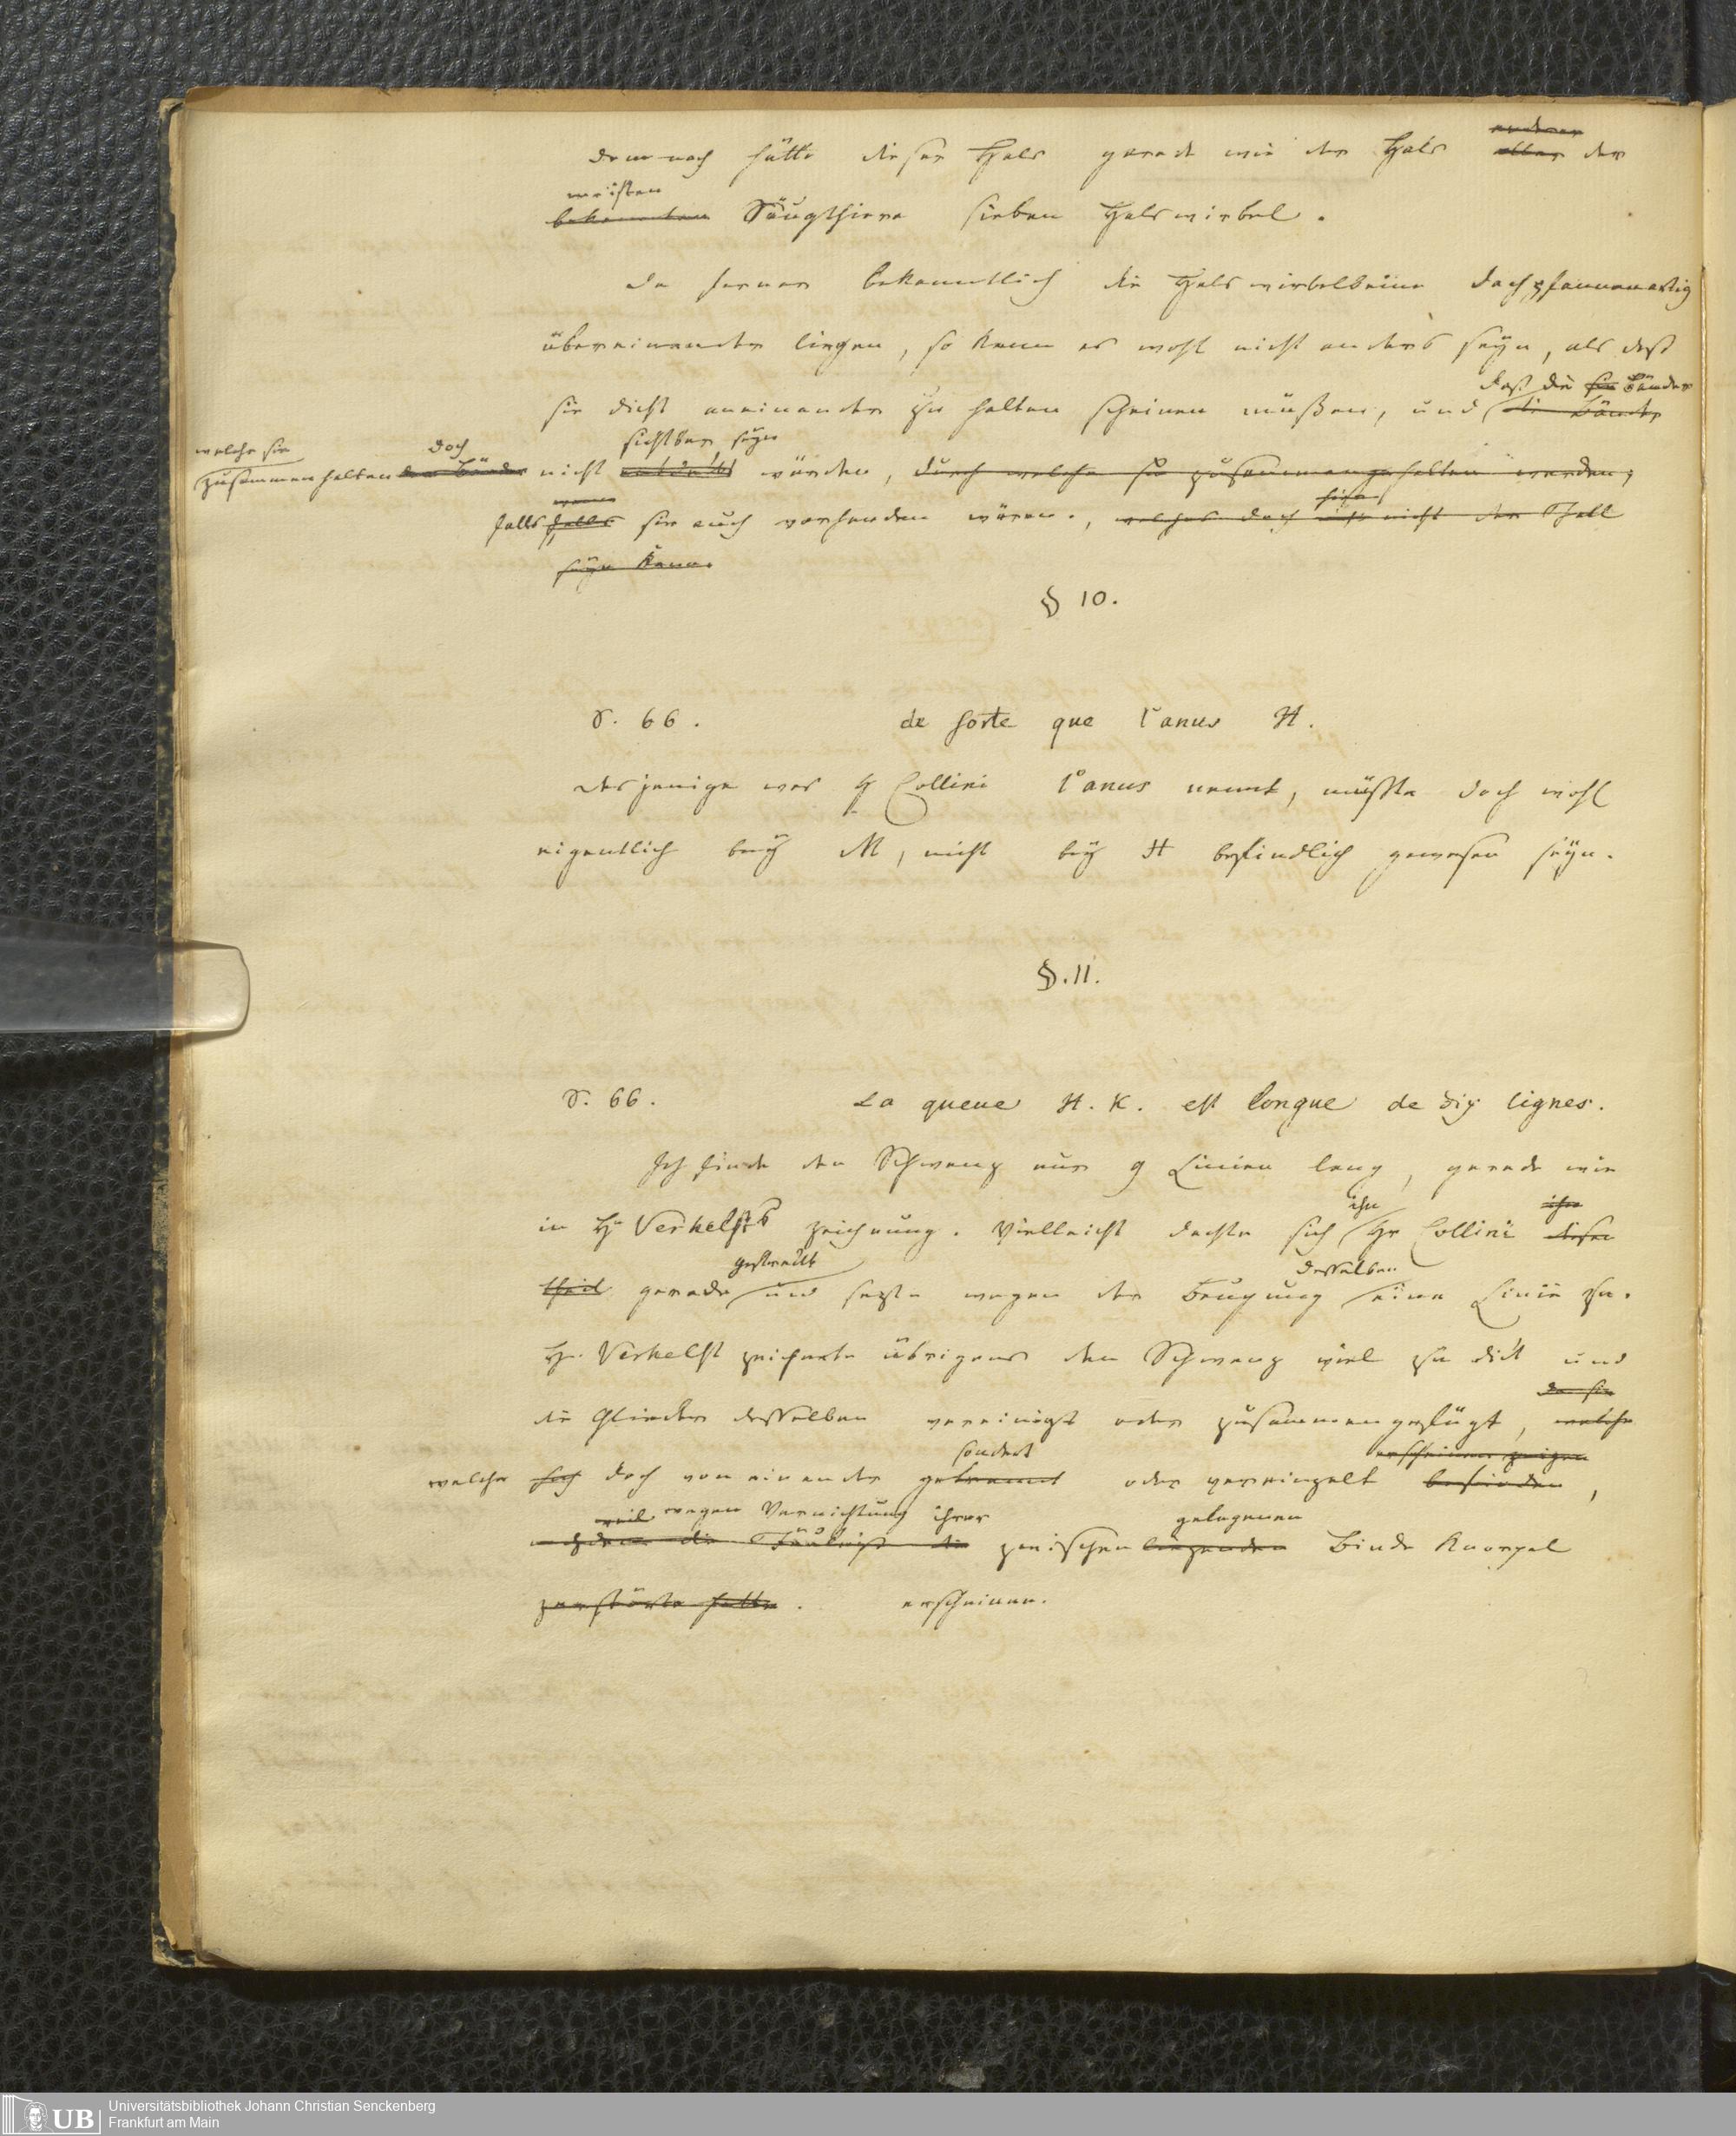 demnach hätte dieser Hals gerade wie der Hals aller anderer der
bekannten meisten Säugthiere sieben Halswirbel.
Da ferner bekanntlich die Halswirbelbeine dachpfannenartig
übereinander liegen, so kann es wohl nicht anders seyn, als daß
sie dicht aneinander zu halten scheinen müßen, und die Bänder daß die sie Bänder
welche sie zusammenhalten doch nicht sichtbar seyn würden, durch welche sie zusammengehalten werden,
falls falls wenn sie auch vorhanden wären., welches doch nicht der Fall
seyn kann.
§ 10.
S. 66. de sorte que l'anus H.
Dasjenige was H Collini l'anus nennt, müßte doch wohl
eigentlich bey M, nicht bey H befindlich gewesen seyn.
§. 11.
S. 66. La queue H. K. est longue de dix lignes.
Ich finde den Schwanz nur 9 Linien lang, gerade wie
in Hr Verhelst's Zeichnung. Vielleicht dachte sich ihn Hr Collini diesen ihn
Theil gerade gestreckt und setzte wegen der Beugung desselben eine Linie zu.
Hr. Verhelst zeichnete übrigens den Schwanz viel zu dick und
die Glieder desselben vereinigt oder zusammengefügt, welche da sie
welche sich doch von einander getrennt sondert oder vereinzelt befinden erscheinen zeigen,
nachdem die Fäulniß die weil wegen Vernichtung ihrer zwischen liegenden gelegenen Binde Knorpel
zerstörte hatte. erscheinen.
Universitätsbibliothek Johann Christian Senckenberg
Frankfurt am Main
UB